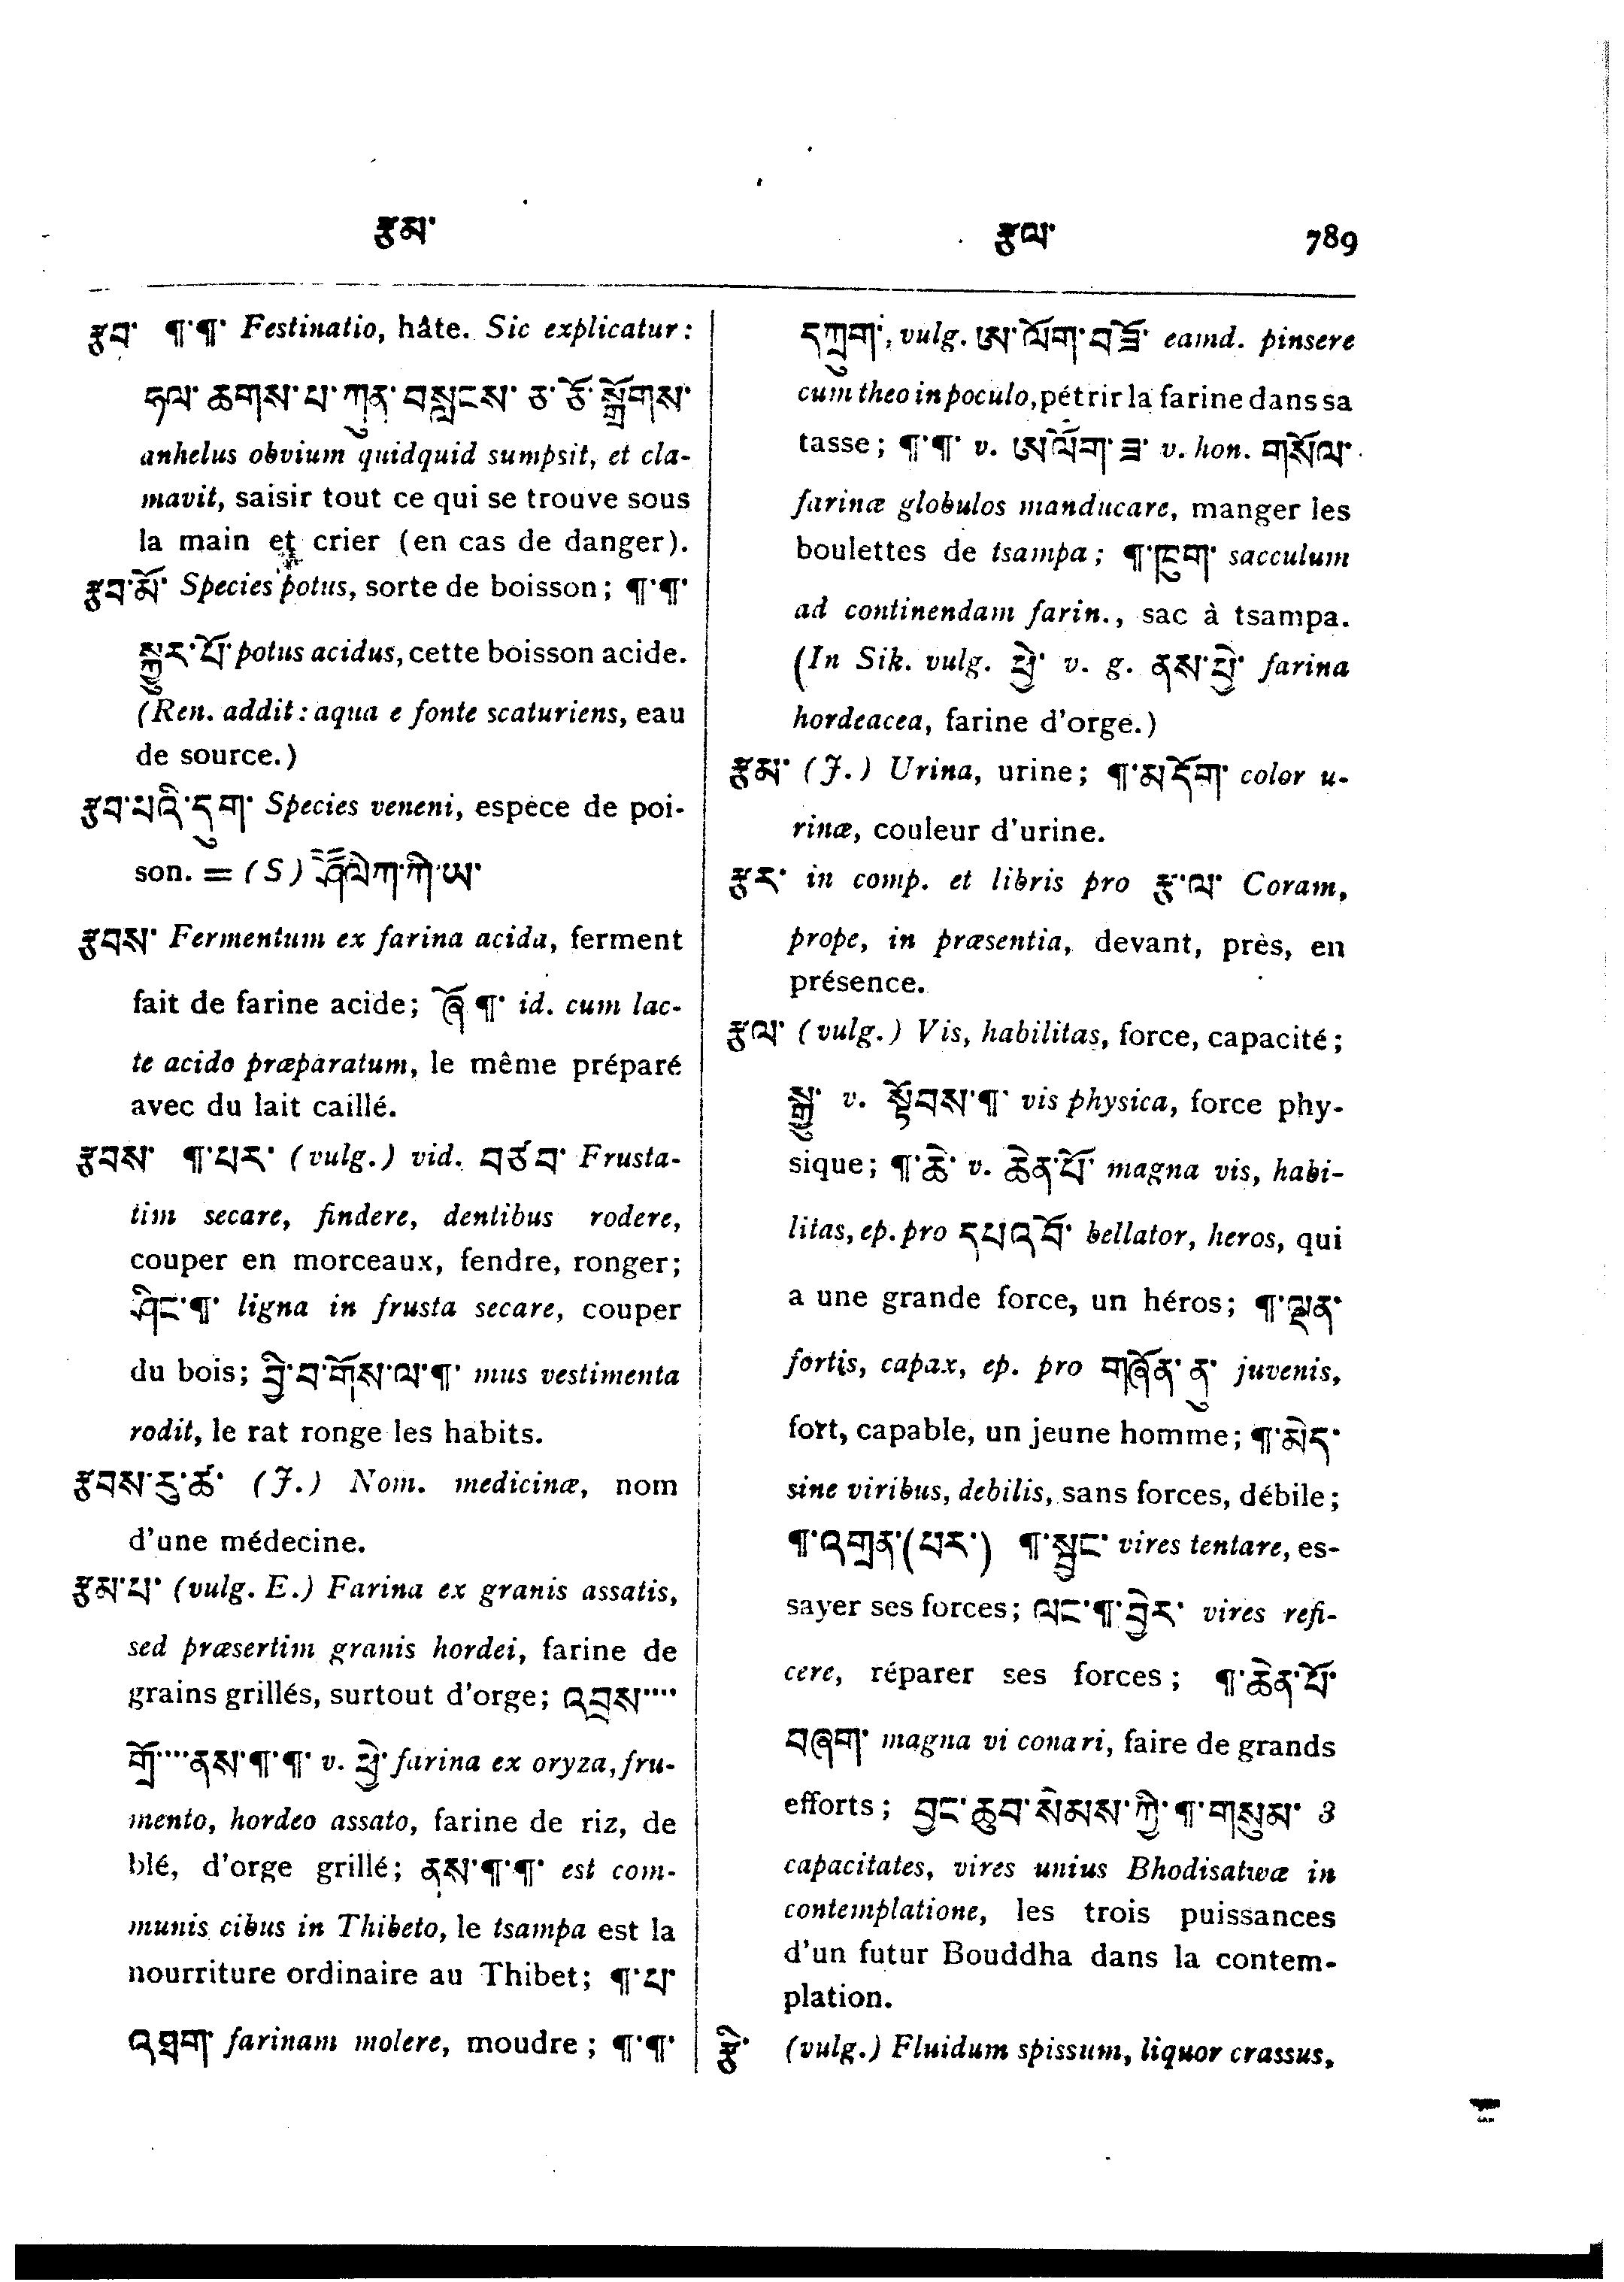 རྩམ་ རྩལ་ 789
རྩབ་ ¶་¶་ Festinatio, hâte. Sic explicatur:
ཧལ་ ཆགས་ པ་ ཀུན་ བསླངས་ ཅ་ ཅོ་ སྒྲོགས་
anhelus obvium quidquid sumpsit, et cla-
mavit, saisir tout ce qui se trouve sous
la main et crier (en cas de danger).
རྩབ་མོ་ Species potus, sorte de boisson; ¶་¶་
སྐྱུར་པོ་ potus acidus, cette boisson acide.
(Ren. addit: aqua e fonte scaturiens, eau
de source.)
རྩབ་པའི་དུག་ Species veneni, espèce de poi-
son. = (S)
རྩབས་ Fermentum ex farina acida, ferment
fait de farine acide; ཞོ་¶་ id. cum lac-
te acido præparatum, le même préparé
avec du lait caillé.
རྩབས་ ¶་པར་ (vulg.) vid. བཙབ་ Frusta-
tim secare, findere, dentibus rodere,
couper en morceaux, fendre, ronger;
ཤིང་¶་ ligna in frusta secare, couper
du bois; བྱི་བ་གོས་ལ་¶་ mus vestimenta
rodit, le rat ronge les habits.
རྩབས་རུ་ཚ་ (J.) Nom. medicinæ, nom
d'une médecine.
རྩམ་པ་ (vulg. E.) Farina ex granis assatis,
sed præsertim granis hordei, farine de
grains grillés, surtout d'orge; འབྲས་་་་
གྲོ་་་་ནས་¶་¶་ v. ཕྱེ་ farina ex oryza, fru-
mento, hordeo assato, farine de riz, de
blé, d'orge grillé; ནས་¶་¶་ est com-
munis cibus in Thibeto, le tsampa est la
nourriture ordinaire au Thibet; ¶་པ་
འཐག་ farinam molere, moudre; ¶་¶་
དཀྲུག་, vulg. ཨ་ལོག་བཟོ་ eamd. pinsere
cum theo in poculo, pétrir la farine dans sa
tasse; ¶་¶་ v. ཨ་ལོག་ཟ་ v. hon. གསོལ་
farinæ globulos manducare, manger les
boulettes de tsampa; ¶་ཁུག་ sacculum
ad continendam farin., sac à tsampa.
(In Sik. vulg. ཕྱེ་ v. g. ནས་ཕྱེ་ farina
hordeacea, farine d'orge.)
རྩམ་ (J.) Urina, urine; ¶་མདོག་ color u-
rinæ, couleur d'urine.
རྩར་ in comp. et libris pro རྩ་ལ་ Coram,
prope, in præsentia, devant, près, en
présence.
རྩལ་ (vulg.) Vis, habilitas, force, capacité;
སྐྱུ་ v. སྟོབས་¶་ vis physica, force phy-
sique; ¶་ཆེ་ v. ཆེན་པོ་ magna vis, habi-
litas, ep. pro དཔའ་བོ་ bellator, heros, qui
a une grande force, un héros; ¶་ལྡན་
fortis, capax, ep. pro གཞོན་ནུ་ juvenis,
fort, capable, un jeune homme; ¶་མེད་
sine viribus, debilis, sans forces, débile;
¶་འགྲན་(པར་) ¶་སྦྱང་ vires tentare, es-
sayer ses forces; ལང་¶་བྱེར་ vires refi-
cere, réparer ses forces; ¶་ཆེན་པོ་
བཞག་ magna vi conari, faire de grands
efforts; བྱང་ཆུབ་སེམས་ཀྱི་¶་གསུམ་ 3
capacitates, vires unius Bhodisatwæ in
contemplatione, les trois puissances
d'un futur Bouddha dans la contem-
plation.
རྩི་ (vulg.) Fluidum spissum, liquor crassus,